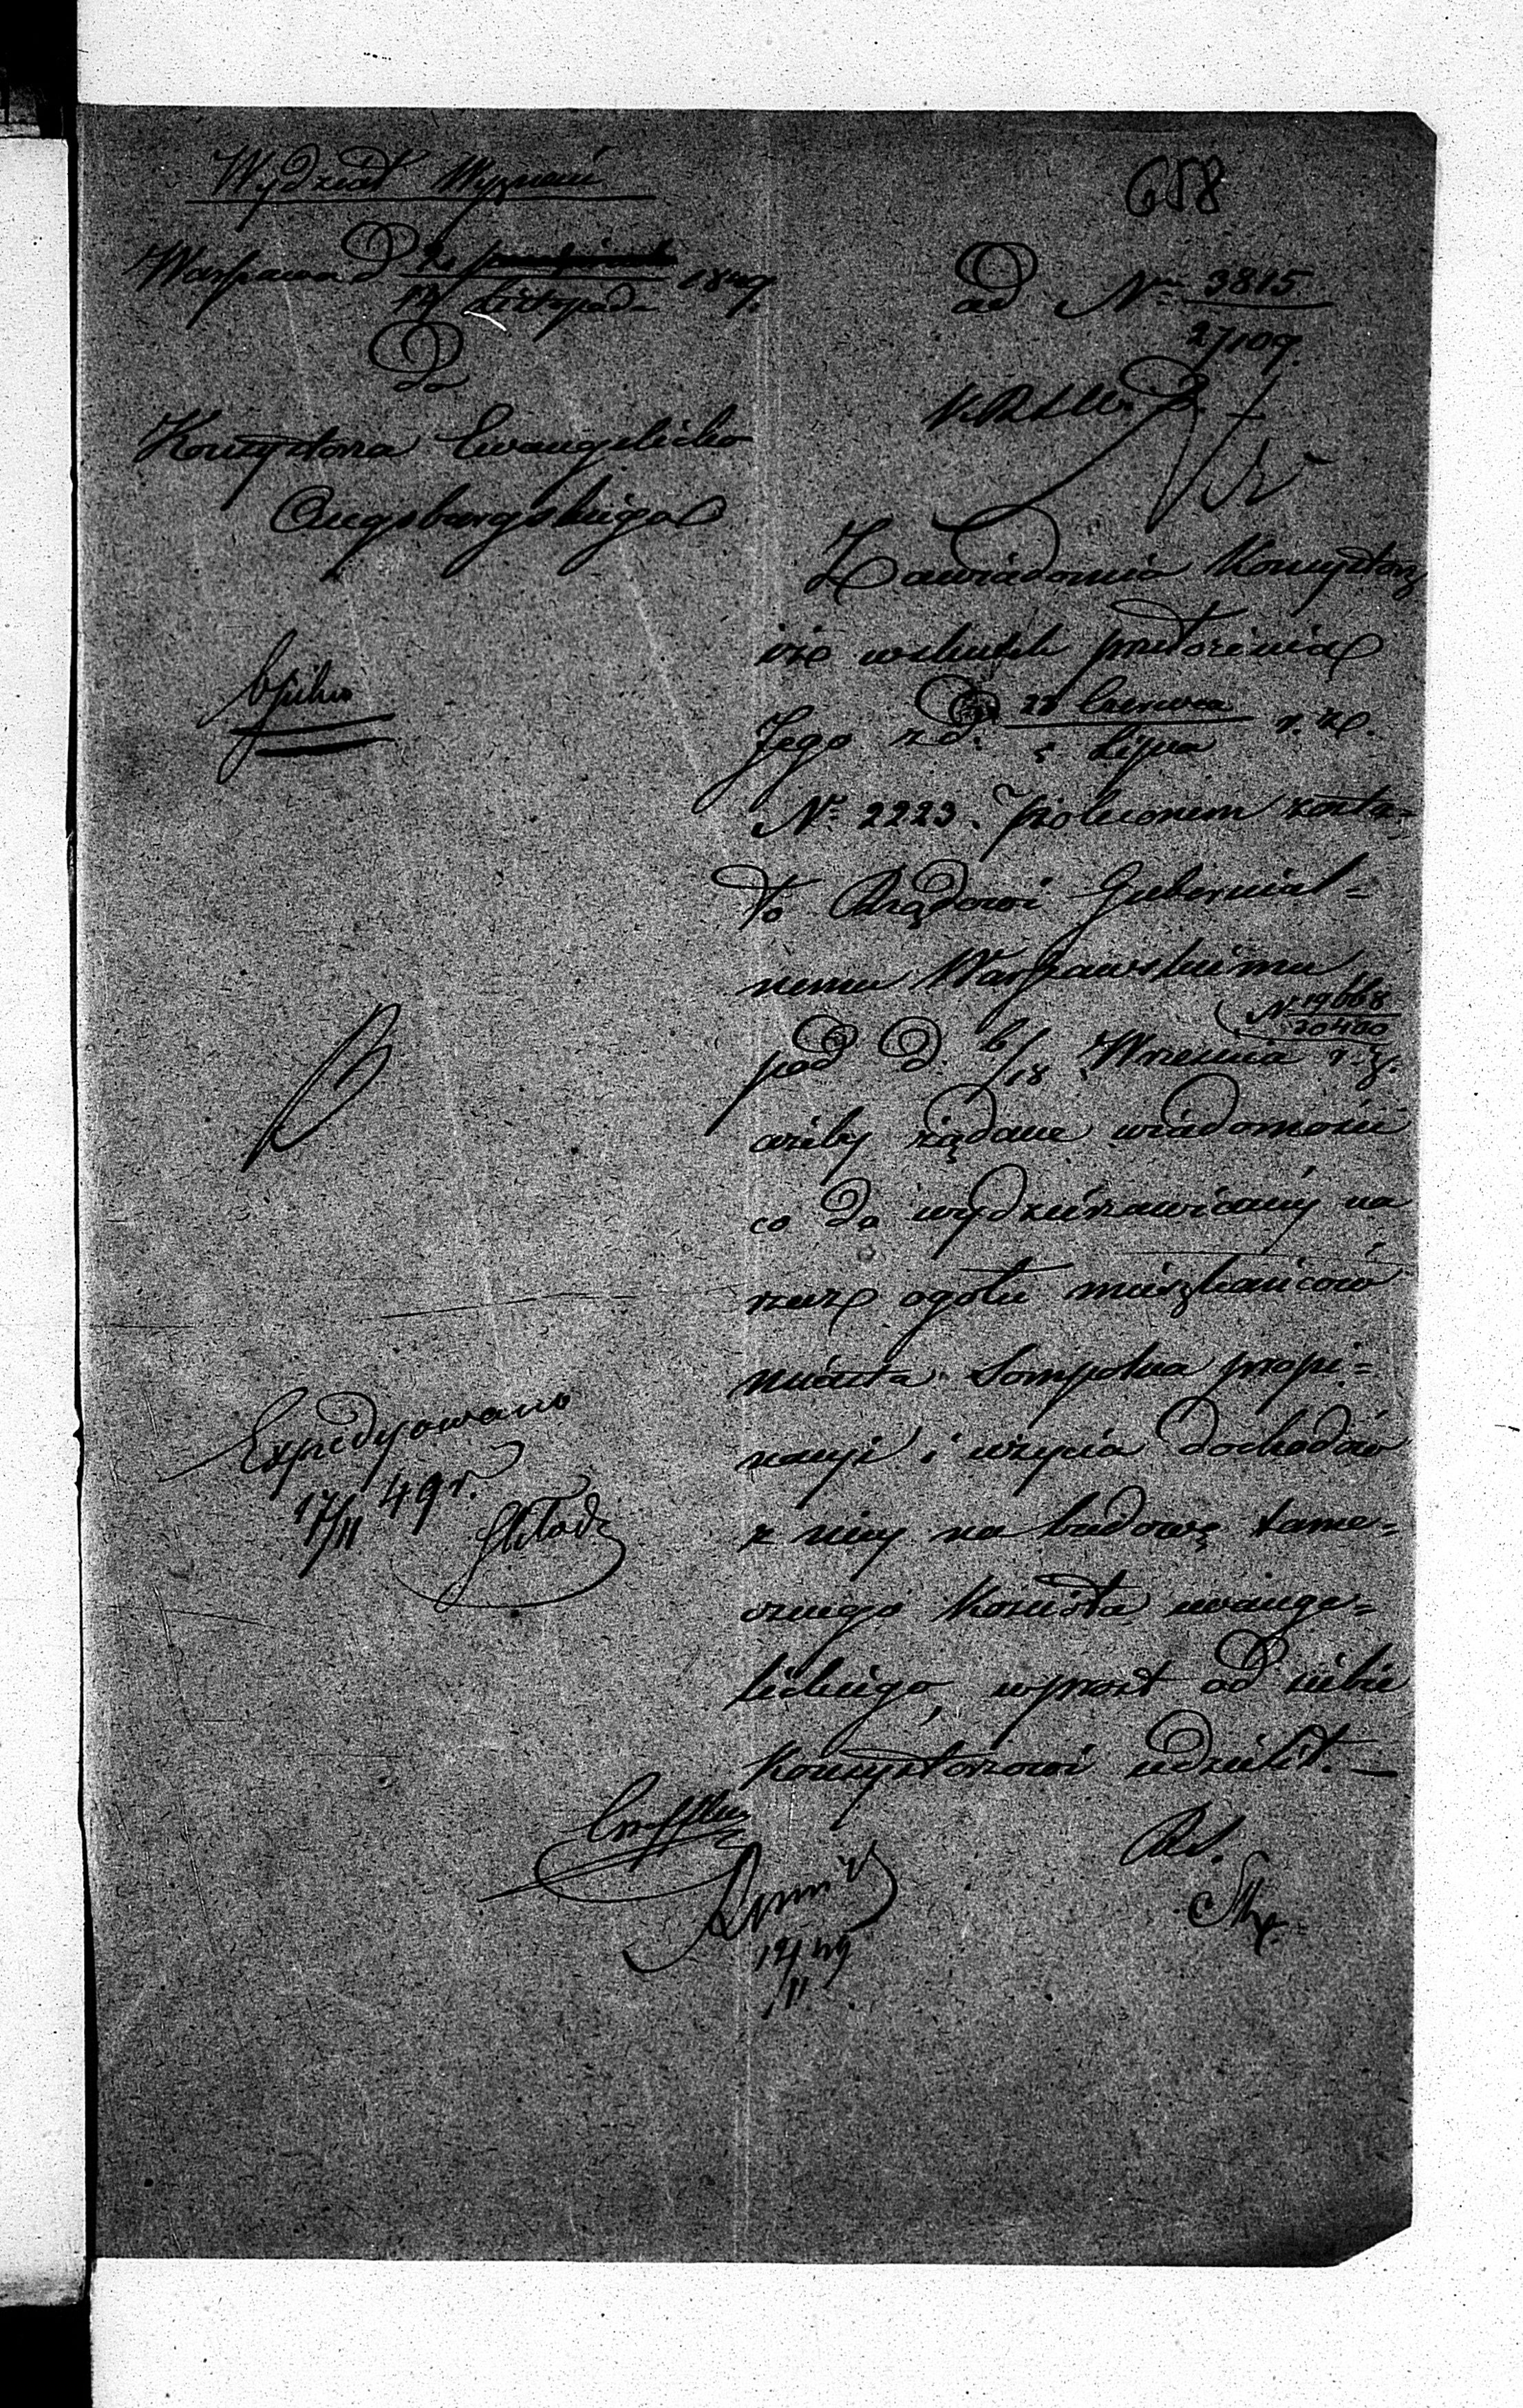 Wydział Wyznań
658
Warszawa d 2
17 Listopada 1849
ad Nr 3815
27109.
Do
K.R.S.W. D.
Konsystorza Ewangelicko
Augsburgskiego
Zawiadomia Konsystorz
iż wskutek przełożenia
Jego z d. 23 Czerwca
5 Lipca r. z.
No 2223. poleconem zosta=
ło Rządowi Gubernial=
nemu Warszawskiemu
No 19668
20400
pod d. 6/18 Września r. z.
ażeby żądane wiadomości
co do wydzierżawionej na
rzecz ogółu mieszkańców
miasta Sompolna propi=
nacyi i użycia dochodów
z niej na budowę tame=
cznego Kościoła ewange=
lickiego, wprost od siebie
Konsystorzowi udzielił.—
Expedyowano
17/11 49 r.
12/11 49